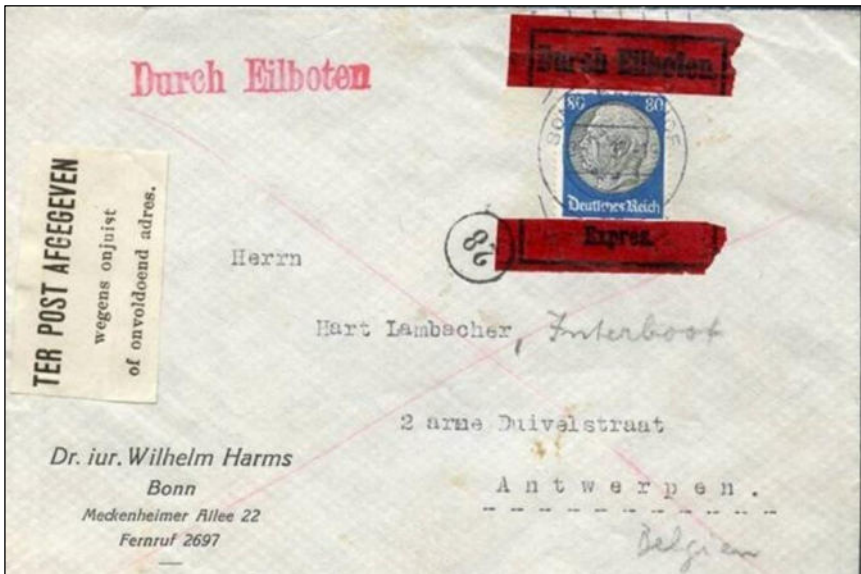 Durch Eilboten
Durch Eilboten
80 80
Deutsches Reich
Expres.
28
TER POST AFGEGEVEN
wegens onjuist
of onvoldoend adres.
Herrn
Hart Lambacher,
2 arme Duivelstraat
Antwerpen.
Belgien
Dr. iur. Wilhelm Harms
Bonn
Meckenheimer Allee 22
Fernruf 2697